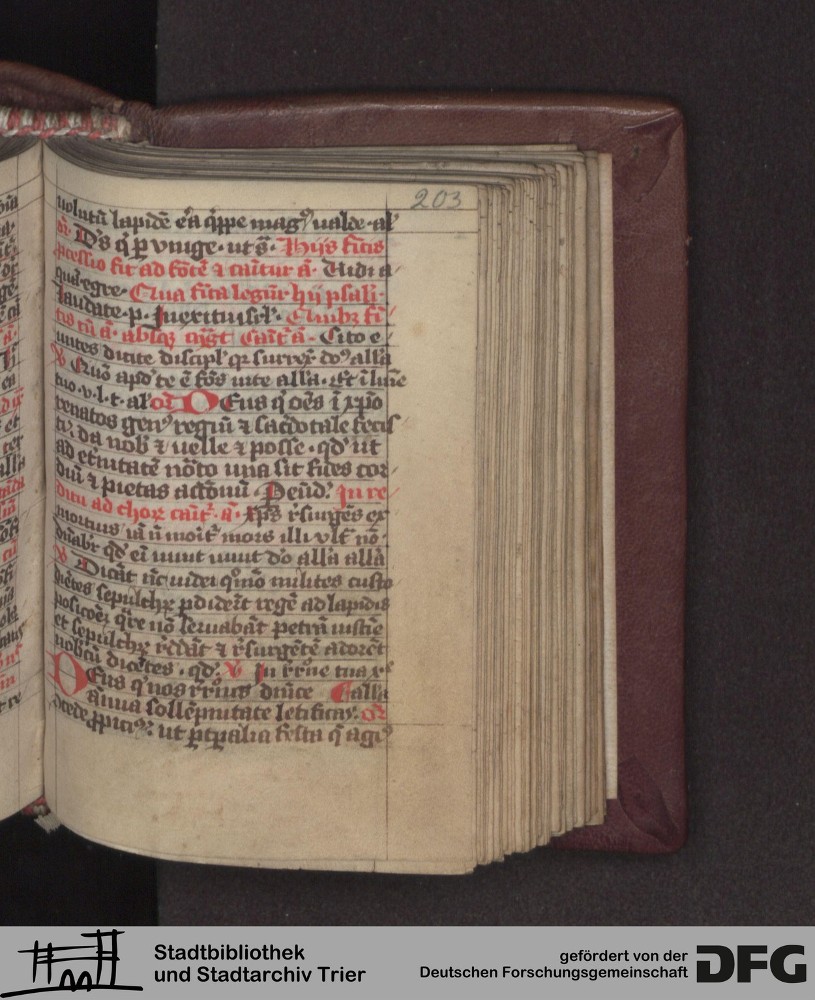 203
uolutū lapidē e͛a q̄ppe magꝰ ualde · al͛
or̄ Ds q̇ ꝑ vnige · ut s̄ · Hijs fītis
ꝓcessio fit ad fōtē ⁊ cāitur ā · Vidi a
quā · egre · Qua fīta legūr hij psalī ·
laudate · p · In exitu isrl̄ ·
tis cū ā · absqꝫ Cāit̄ ā · Cito e
untes dicite discipl̓ qꝛ surrex̄ dōs all̄a
V̄ Qm̄ apd̓ te ē fōs uite all̄a · Et ī lumīe
tuo · v · l · t · al̓ or̄ Deus q̇ oēs ī xp̄o
renatos genꝰ regiū ⁊ sac̓dotale fecis
ti · da nob̄ ⁊ uelle ⁊ posse · qd̓ ut
ad et̓nitatē uōto una sit fides cor
diū ⁊ pietas actōnū · Ꝑ eūd̓ · In re
ditu ad choꝝ cāit̄ · ā · xp̄s r̓surgēs ex
mortuis iā n̄ morit̄ mors illi vlt̓ nō
dn̄abr̄ qd̓ eī uiuit uiuit dō all̄a all̄a
V̄ Dicāt nc̄ iudei qͦmō milites custo
diētes sepulchꝝ ꝑdidert̄ regē ad lapidis
posicoēꝫ q̄re nō seruabāt petrā iustic̄e
et sepultū r̓dāt ⁊ r̓surgētē adorēt
nobcū dicētes · qd̓ · V̄ In r̓r̓one tua xᵉ
Deus q̇ nos r̓r̓onis dn̄ice all̄a
ānua sollēpnitate letificas · or̄
ꝯcede ꝓpiciꝰ · ut ꝑ tꝑalia festa q̄ agiꝰ
Stadtbibliothek
und Stadtarchiv Trier
gefördert von der
Deutschen Forschungsgemeinschaft
DFG